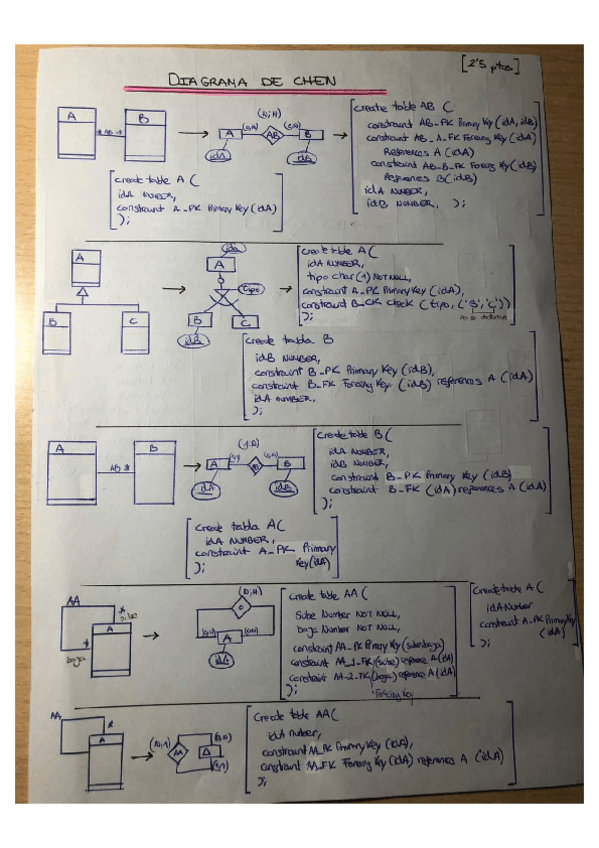 [2'5 ptos]
DIAGRAMA DE CHEN
A
B
*AB*
(N:M)
A
(0,N)
AB
(0,N)
B
idA
idB
create table AB (
constraint AB_PK Primary Key (idA, idB)
constraint AB_A_FK Foreing Key (idA)
References A (idA)
constraint AB_B_FK Foreing Key (idB)
References B (idB)
idA NUMBER,
idB NUMBER, );
create table A (
idA NUMBER,
constraint A_PK Primary Key (idA)
);
A
B
C
ida
A
tipo
B
C
idB
create table A (
idA NUMBER,
tipo char(1) NOT NULL,
constraint A_PK Primary Key (idA),
constraint B_CK check (tipo, ('B', 'C'))
);
create tabla B
idB NUMBER,
constraint B_PK Primary Key (idB),
constraint B_FK Foreing Key (idB) references A (idA)
idA number,
);
A
AB *
B
(1:N)
A
(1,1)
B
idA
idB
create table B (
idA NUMBER,
idB NUMBER,
constraint B_PK Primary Key (idB)
constraint B_FK (idA) references A (idA)
);
create tabla A (
idA NUMBER,
constraint A_PK Primary
Key (idA)
);
AA
*
sube
A
*
baja
(N:M)
(0,N)
A
(0,N)
idA
create table AA (
Sube Number NOT NULL,
baja Number NOT NULL,
constraint AA_PK Primary Key (sube, baja)
constraint AA_1_FK (sube) reference A (idA)
constraint AA_2_FK (baja) reference A (idA)
);
Foreing Key
Create table A (
idA Number
constraint A_PK Primary Key
(idA)
);
AA
A
(N:1)
AA
(0,N)
A
(1,1)
Create table AA (
idA number,
constraint AA_PK Primary Key (idA),
constraint AA_FK Foreing Key (idA) reference A (idA)
);